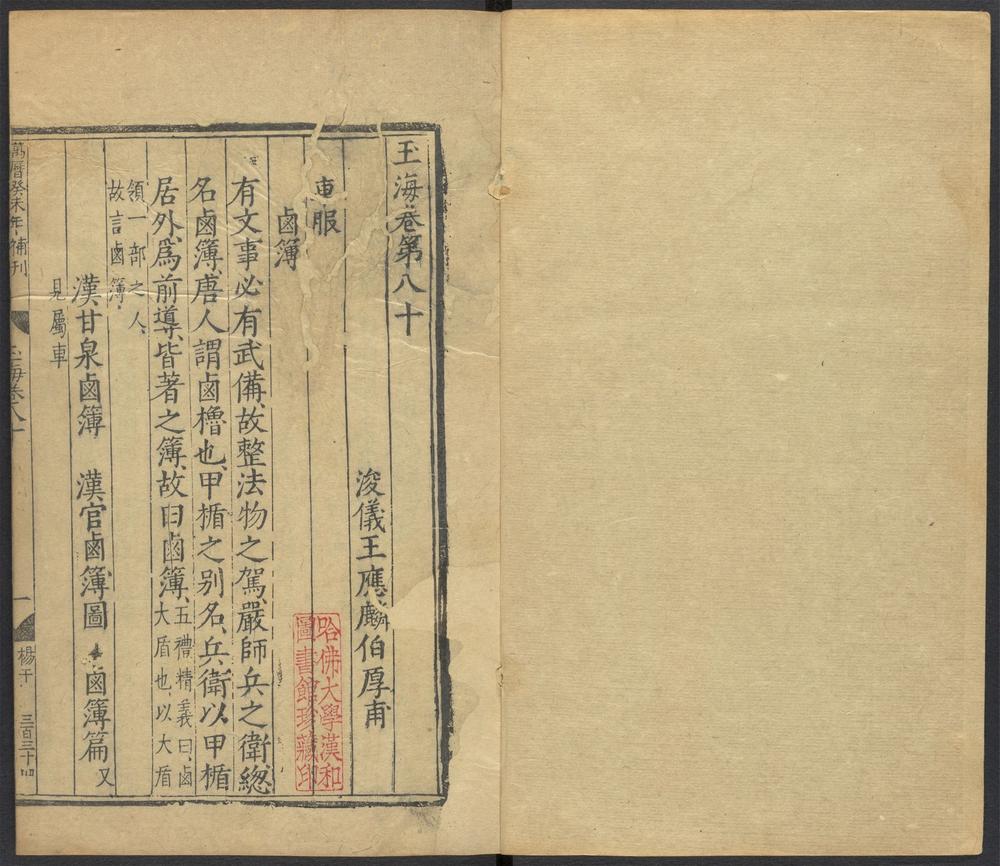 玉海卷第八十
浚儀王應麟伯厚甫
車服
鹵簿
有文事必有武備故整法物之駕嚴師兵之衛緫
名鹵簿唐人謂鹵櫓也甲楯之别名兵衛以甲楯
居外爲前導皆著之簿故曰鹵簿五禮精義曰鹵
大盾也以大盾
領一部之人
故言鹵簿
漢甘泉鹵簿 漢官鹵簿圖 鹵簿篇又
見屬車
萬曆癸未年補刊
玉海卷八十
一
楊干
三百三十四
哈佛大學漢和
圖書館珍藏印